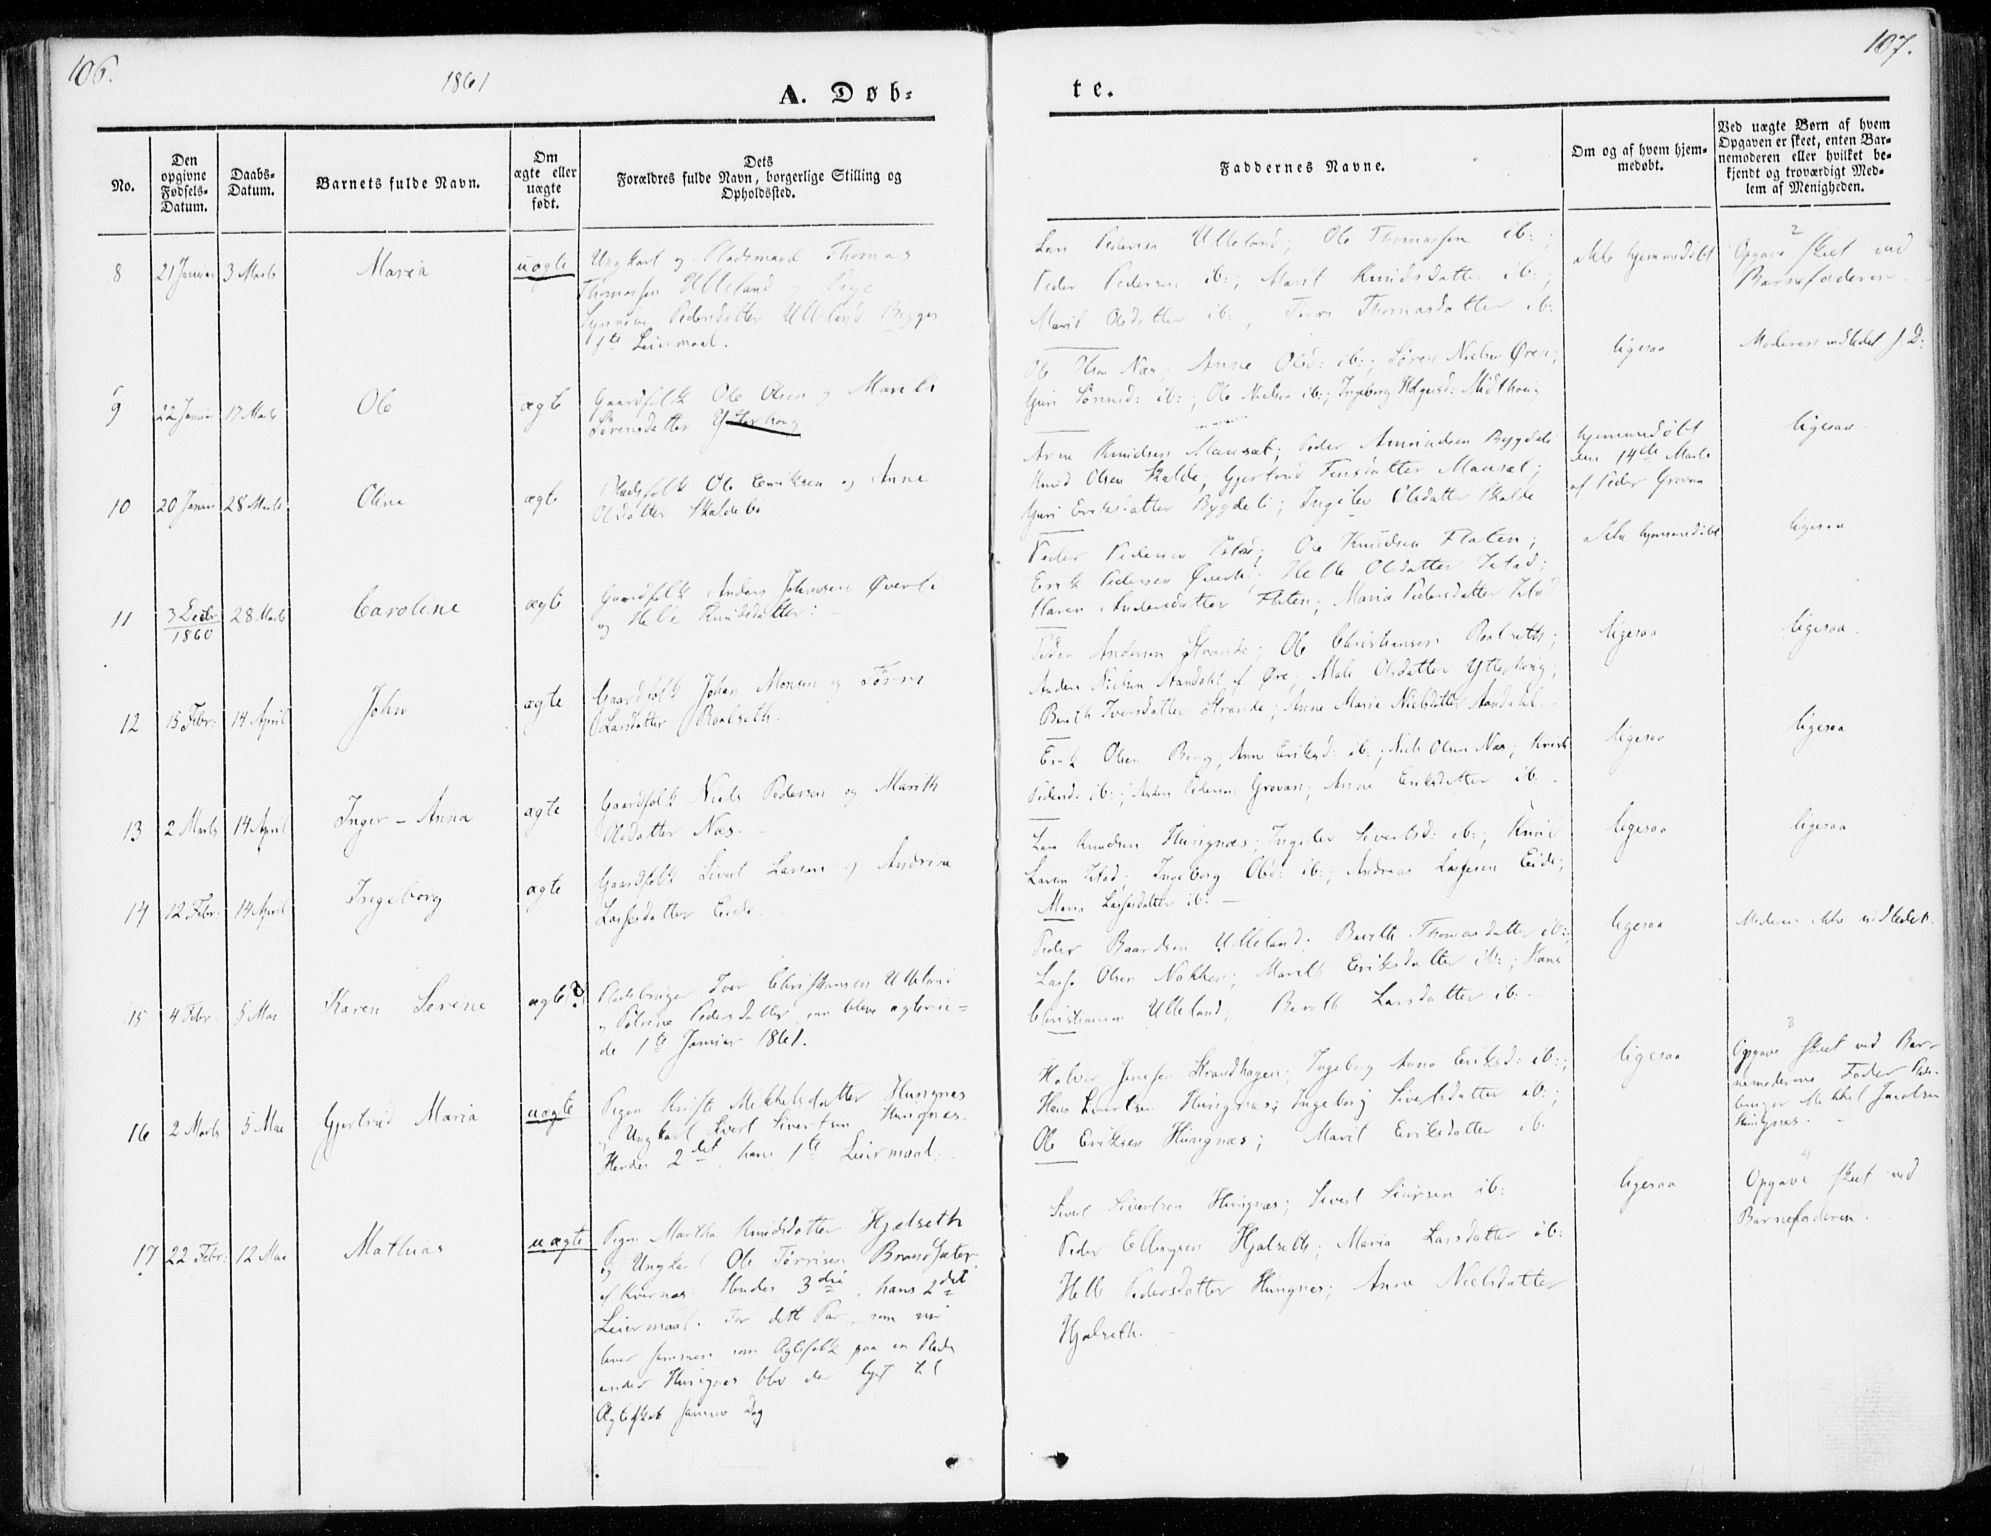 106.
1861
A. Døb-
No.
Den opgivne Fødsels-Datum.
Daabs-Datum.
Barnets fulde Navn.
Om ægte eller uægte født.
Dets
Forældres fulde Navn, borgerlige Stilling og
Opholdssted.
8 21 Januar 3 Marts Maria uægte Ungkarl og Pladsmand Thomas
Thomassen Ulleland og Pige
Synnøve Pedersdatter Ulleland Begges
1ste Leiermaal.
9 22 Januar 17 Marts Ole ægte Gaardfolk Ole Olsen og Marith
Sørensdatter Ytterhoug
10 20 Januar 28 Marts Oline ægte Pladsfolk Ole Eriksen og Anne
Olsdatter Skaldeli
11 3 Decbr 1860 28 Marts Caroline ægte Gaardfolk Anders Johnsen Øverli
og Helle Knudsdatter.
12 15 Febr: 14 April John ægte Gaardfolk Johan Monsen og Førri
Larsdatter Roalseth.
13 2 Marts 14 April Inger-Anna ægte Gaardfolk Niels Pedersen og Marith
Olsdatter Næs.
14 12 Febr. 14 April Ingeborg ægte Gaardfolk Sivert Larsen og Andrine
Lassesdatter Eide.
15 4 Febr. 5 Mai Karen Serine ægte? Pladsbruger Iver Christiansen Ulleland
og Pedersdatter som bleve ægtevie-
de 1ste Januar 1861.
16 2 Marts 5 Mai Gjertrud Maria uægte Pigen Mikkelsdatter Hungnes
Ungkarl Sivert Sivertsen Hungnes.
Hendes 2det, hans 1ste Leiermaal.
17 22 Febr: 12 Mai Mathias uægte Pigen Martha Knudsdatter Hjelseth
og Ungkarl Ole Tørrisen Brandsæter
af Kvernæs. Hendes 3die, hans 2det
Leiermaal. For dette Par, som nu
lever sammen som Ægtefolk paa en Plads
under Hungnes blev der lyst til
Ægteskab samme Dag
107.
te.
Faddernes Navne.
Om og af hvem hjem-
medøbt.
Ved uægte Børn af hvem
Opgaven er skeet, enten Bar-
nemoderen eller hvilket be-
kjendt og troværdigt Med-
lem af Menigheden.
Lars Pedersen Ulleland; Ole Thomassen ib:;
Peder Pedersen ib:; Marit Knudsdatter ib:;
Marit Olsdatter ib:; Thomasdatter ib:
ikke hjemmedøbt
2
Opgave skeet ved
Barnefaderen.
Ole Olsen Næs; Anne Olsd: ib:; Søren Nielsen Øren;
Guri Sørensd: ib:; Ole Nielsen ib:; Ingeborg Holgersd: Midthoug
ligesaa
Moderen indledet
Arne Knudsen Mausæt; Peder Amundsen Bygdeli
Knud Olsen Skalde; Gjertrud Finsdatter Mausæt;
Guri Eriksdatter Bygdeli; Ingelev Olsdatter Skalde
hjemmedøbt
den 14de Marts
af Peder Grovan
ligesaa.
Peder Pedersen Istad; Ole Knudsen Flaten;
Erik Pedersen Øverli; Helle Olsdatter Istad;
Karen Andersdatter Flaten; Maria Pedersdatter Istad
ikke hjemmedøbt
ligesaa
Peder Andersen Strande; Ole Christiansen Roalseth;
Anders Nielsen Aandahl af Øre; Mali Olsdatter Ytterhoug;
Berith Iversdatter Strande; Anne Maria Nielsdatter Aandahl.
ligesaa
ligesaa.
Erik Olsen Berg; Anne Eriksd: ib:; Niels Olsen Næs;
Pedersd: ib:; Anders Pedersen Grovan; Anne Eriksdatter ib.
ligesaa
ligesaa
Lars Knudsen Hungnæs; Ingelev Sivertsd: ib:; Knud
Larsen Istad; Ingeborg Olsd: ib:; Andreas Lassesen Eide;
Maria Lassesdatter ib:
ligesaa
ligesaa
Peder Baardsen Ulleland; Berith Thomasdatter ib:;
Lasse Olsen Nakken; Marith Eriksdatter ib:; Hans
Christiansen Ulleland; Berith Larsdatter ib:
ligesaa
Moderen ikke indledet.
Halvor Jensen Strandhagen; Ingeborg Anna Eriksd: ib:;
Hans Sivertsen Hungnæs; Ingeborg Sivertsdatter ib:;
Ole Eriksen Hungnæs; Marit Eriksdatter ib:
ligesaa
3
Opgave skeet ved Bar-
nemoderens Fader Plads-
bruger Mikkel Jacobsen
Hungnæs.
Sivert Sivertsen Hungnæs; Sivert Sivertsen ib:
Peder Ellingsen Hjelseth; Maria Larsdatter ib:
Helle Pedersdatter Hungnæs; Anne Nielsdatter
Hjelseth.
ligesaa
Opgave skeet ved
Barnefaderen.